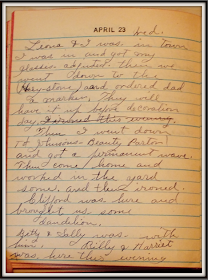 APRIL 23 Wed.
Leona & I was in town
I was in and got my
glasses adjusted. Then we
went down to the
stone yard ordered dad
a marker. They will
have it up before Decoration
Day. I ironed this evening.
Then I went down
to Johnsons Beauty Parlor
and got a permanent wave.
Then I come home and
worked in the yard
some, and then ironed.
Clifford was here and
brought us some
dandelion.
Betty & Sally was with
him. Billy & Harriet
was here this evening